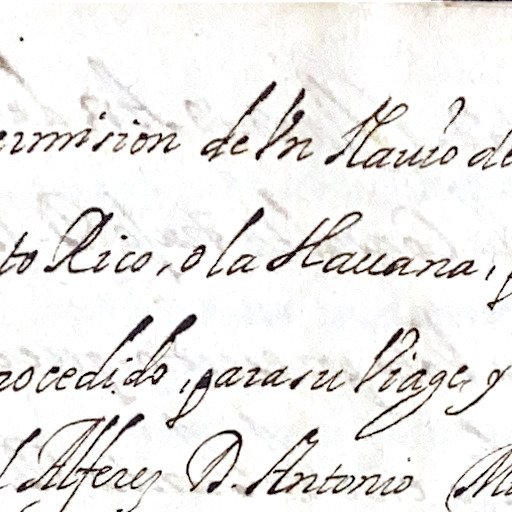 ermision de Vn Nauio de
to Rico, o la Hauana,
rocedido, para su Viage, y
l Alferez D. Antonio